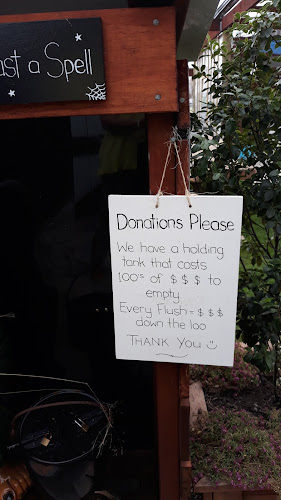 ast a Spell
Donations Please
We have a holding
tank that costs
100's of $ $ $ to
empty
Every Flush = $ $ $
down the loo
THANK YOU ☺